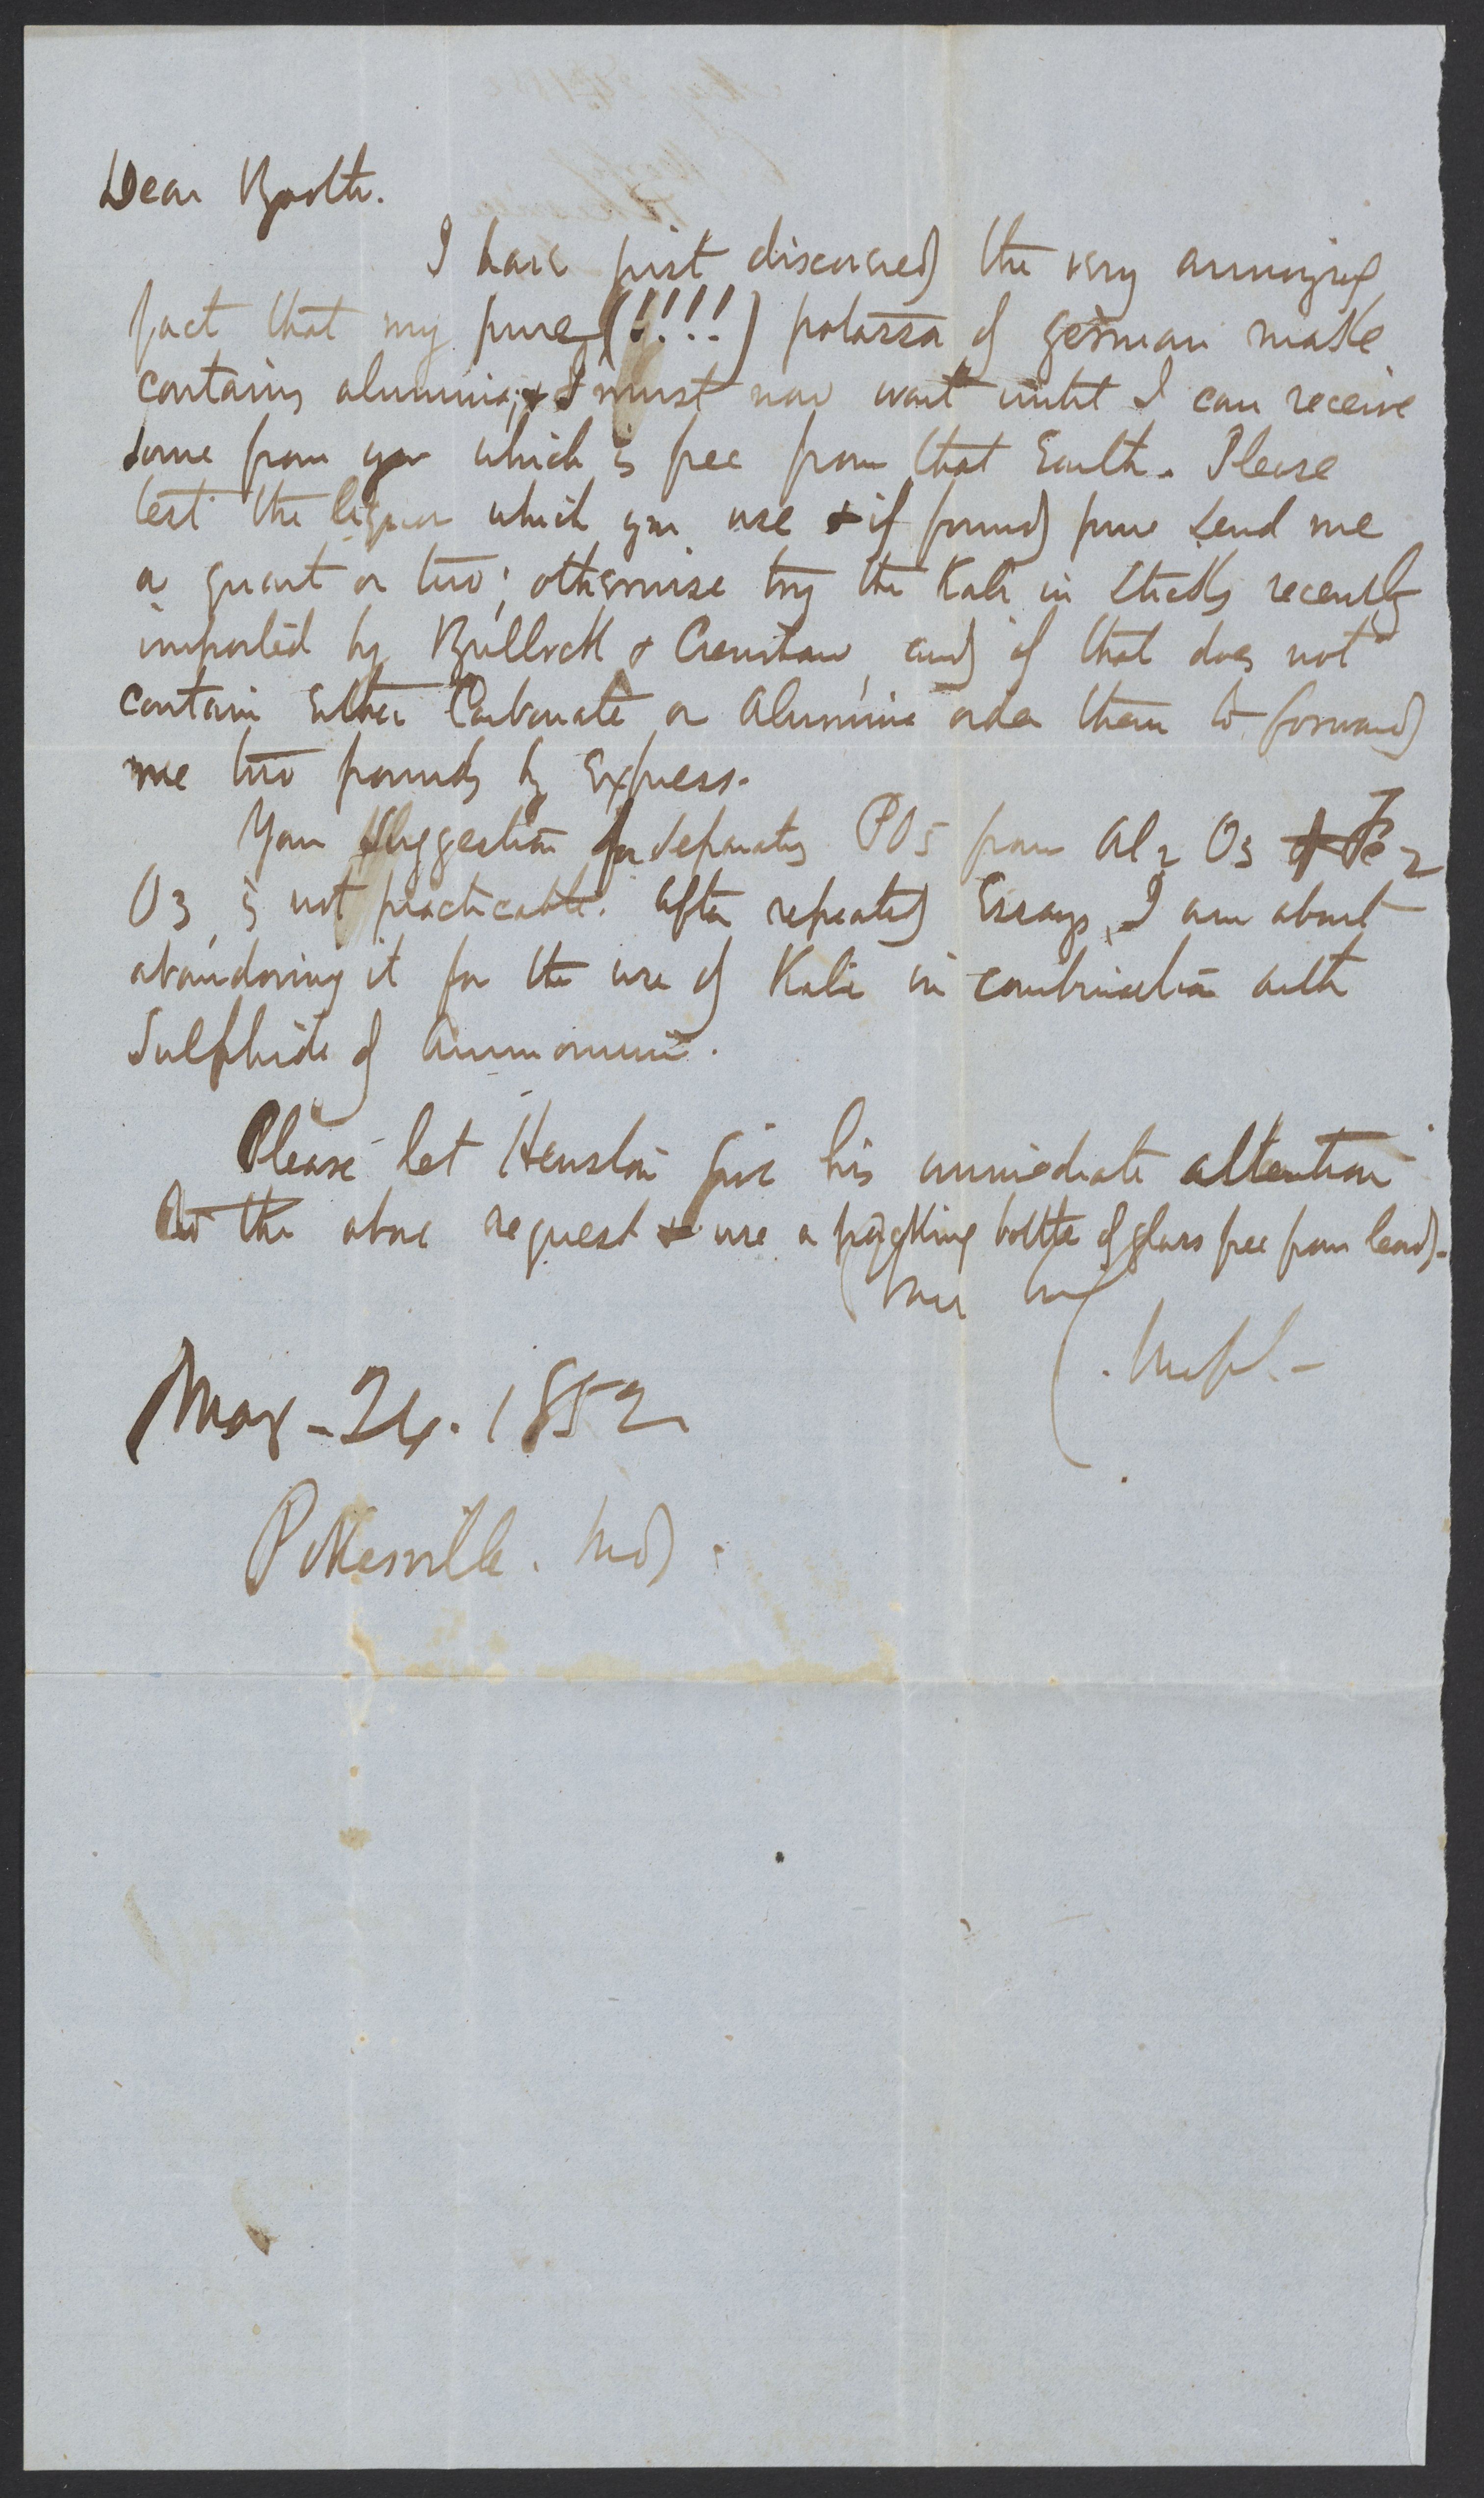 Dear Booth.
I have just discovered the very annoying
fact that my pure (!!!!) potassa of german make
contains alumina, & I must now wait until I can receive
some from you which is free from that Earth. Please
test the liquor which you use & if found pure send me
a quart or two; otherwise try the Kali in sticks recently
imported by Bullock & Crenshaw, and if that does not
contain either Carbonate or Alumina order them to forward
me two pounds by Express.
Your suggestion for separating PO5 from Al2 O3 & Fe2
O3, is not practicable. After repeated Essays, I am about
abandoning it for the use of Kali in combination with
Sulphide of Ammonium.
Please let Henston give his immediate attention
to the above request & use a packing bottle of glass free from lead.
Your
May - 24. 1852
Pikesville. Md.